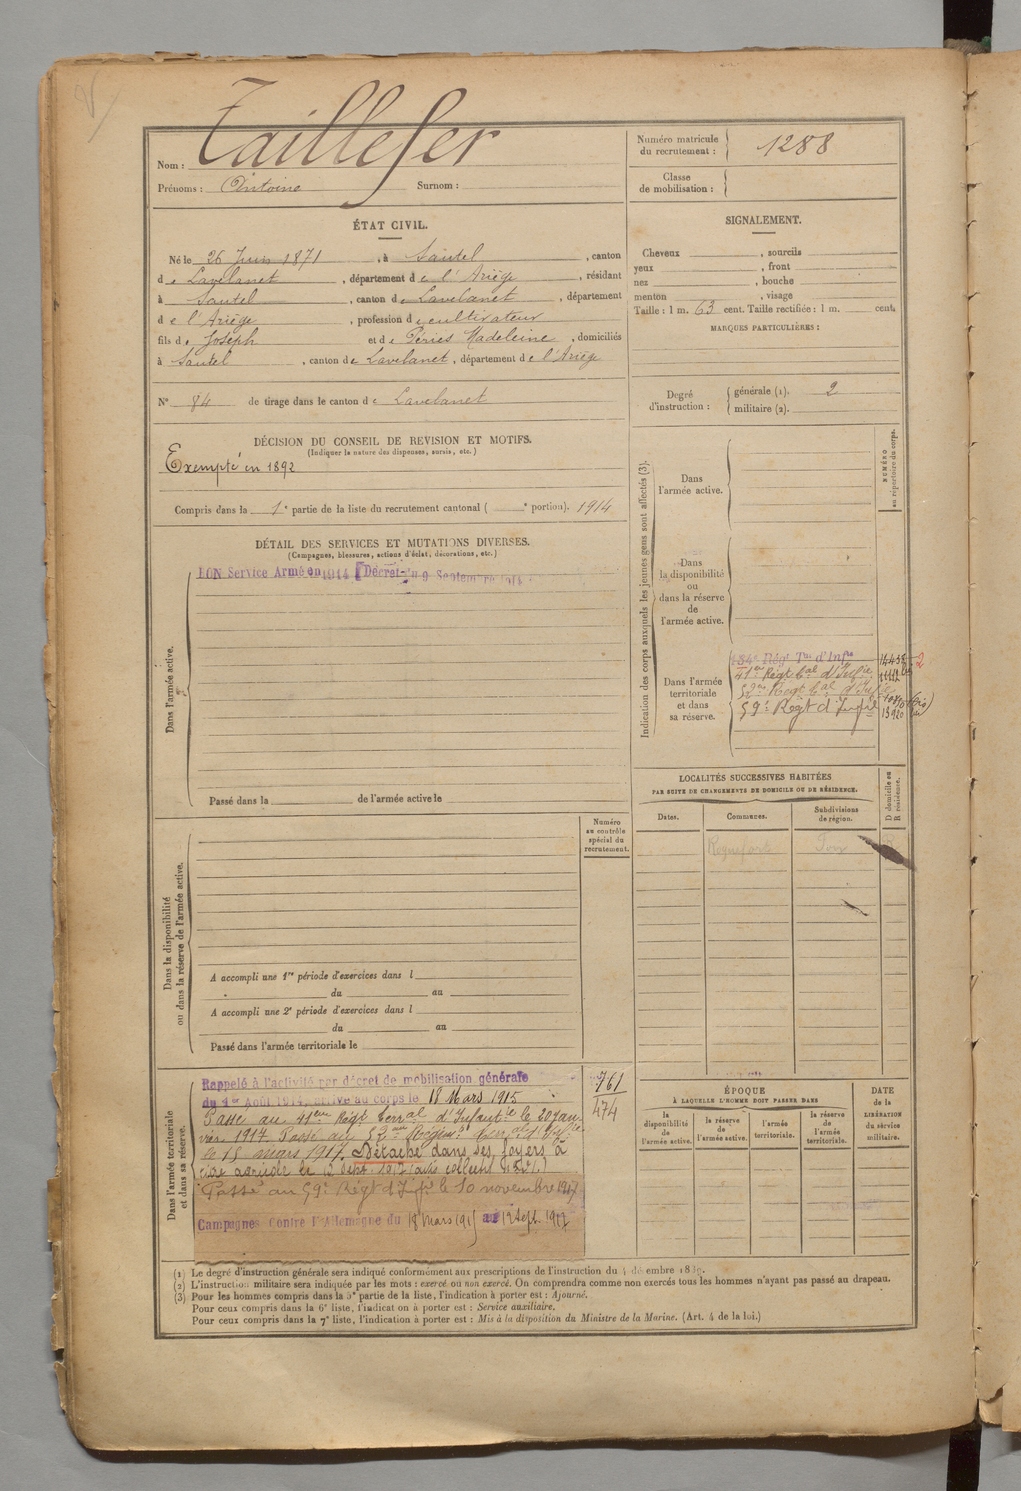 Nom : Taillefer
Prénoms : Antoine Surnom :
Numéro matricule du recrutement : 1288
Classe de mobilisation :
ÉTAT CIVIL.
Né le 26 Juin 1871, à Sautel, canton
de Lavelanet, département de l'Ariège, résidant
à Sautel, canton de Lavelanet, département
de l'Ariège, profession de cultivateur
fils de Joseph et de Péries Madeleine, domiciliés
à Sautel, canton de Lavelanet, département de l'Ariège
N° 84 de tirage dans le canton de Lavelanet
SIGNALEMENT.
Cheveux , sourcils
yeux , front
nez , bouche
menton , visage
Taille : 1 m. 63 cent. Taille rectifiée : 1 m. cent.
MARQUES PARTICULIÈRES :
Degré d'instruction : générale (1). 2
militaire (2).
DÉCISION DU CONSEIL DE REVISION ET MOTIFS.
(Indiquer la nature des dispenses, sursis, etc.)
Exempté en 1892
Compris dans la 1e partie de la liste du recrutement cantonal ( e portion). 1914
DÉTAIL DES SERVICES ET MUTATIONS DIVERSES.
(Campagnes, blessures, actions d'éclat, décorations, etc.)
Dans l'armée active.
BON Service Armé en 1914 (Décret du 9 Septembre 1914
Passé dans la de l'armée active le
Indication des corps auxquels les jeunes gens sont affectés (3).
NUMÉRO au répertoire du corps.
Dans l'armée active.
Dans la disponibilité ou dans la réserve de l'armée active.
Dans l'armée territoriale et dans sa réserve.
134e Régt Tal d'Infie
41em Régt tal d'Infie
52me Regt tal d'Infie
59e Régt d'Infie
LOCALITÉS SUCCESSIVES HABITÉES
PAR SUITE DE CHANGEMENTS DE DOMICILE OU DE RÉSIDENCE.
D domicile ou R résidence.
Dates. Communes. Subdivisions de région.
Roquefort Foix R
Dans la disponibilité ou dans la réserve de l'armée active.
Numéro au contrôle spécial du recrutement.
A accompli une 1re période d'exercices dans l
du au
A accompli une 2e période d'exercices dans l
du au
Passé dans l'armée territoriale le
Dans l'armée territoriale et dans sa réserve.
Rappelé à l'activité par décret de mobilisation générale
du 1er Août 1914, arrivé au corps le 18 Mars 1915
Passé au 41eme Régt terral d'Infantie le 20 jan-
vier 1917. Passé au 52me Régimt terral d'Infie
le 15 mars 1917. Détaché dans ses foyers à
titre agricole le 12 Sept. 1917
Passé au 59e Régt d'Infie le 10 novembre 1917
Campagnes Contre l'Allemagne du 18 Mars 1915 au 12 Sept. 1917
761
474
ÉPOQUE
À LAQUELLE L'HOMME DOIT PASSER DANS
la disponibilité de l'armée active.
la réserve de l'armée active.
l'armée territoriale.
la réserve de l'armée territoriale.
DATE de la LIBÉRATION du service militaire.
(1) Le degré d'instruction générale sera indiqué conformément aux prescriptions de l'instruction du 4 décembre 1889.
(2) L'instruction militaire sera indiquée par les mots : exercé ou non exercé. On comprendra comme non exercés tous les hommes n'ayant pas passé au drapeau.
(3) Pour les hommes compris dans la 5e partie de la liste, l'indication à porter est : Ajourné.
Pour ceux compris dans la 6e liste, l'indication à porter est : Service auxiliaire.
Pour ceux compris dans la 7e liste, l'indication à porter est : Mis à la disposition du Ministre de la Marine. (Art. 4 de la loi.)